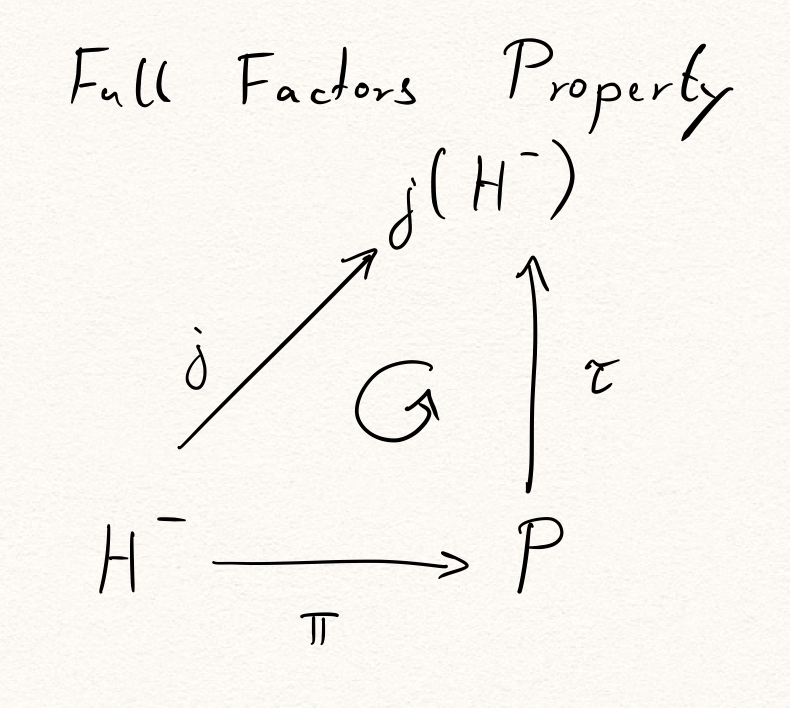 Full Factors Property
j(H⁻)
j
τ
H⁻
P
π